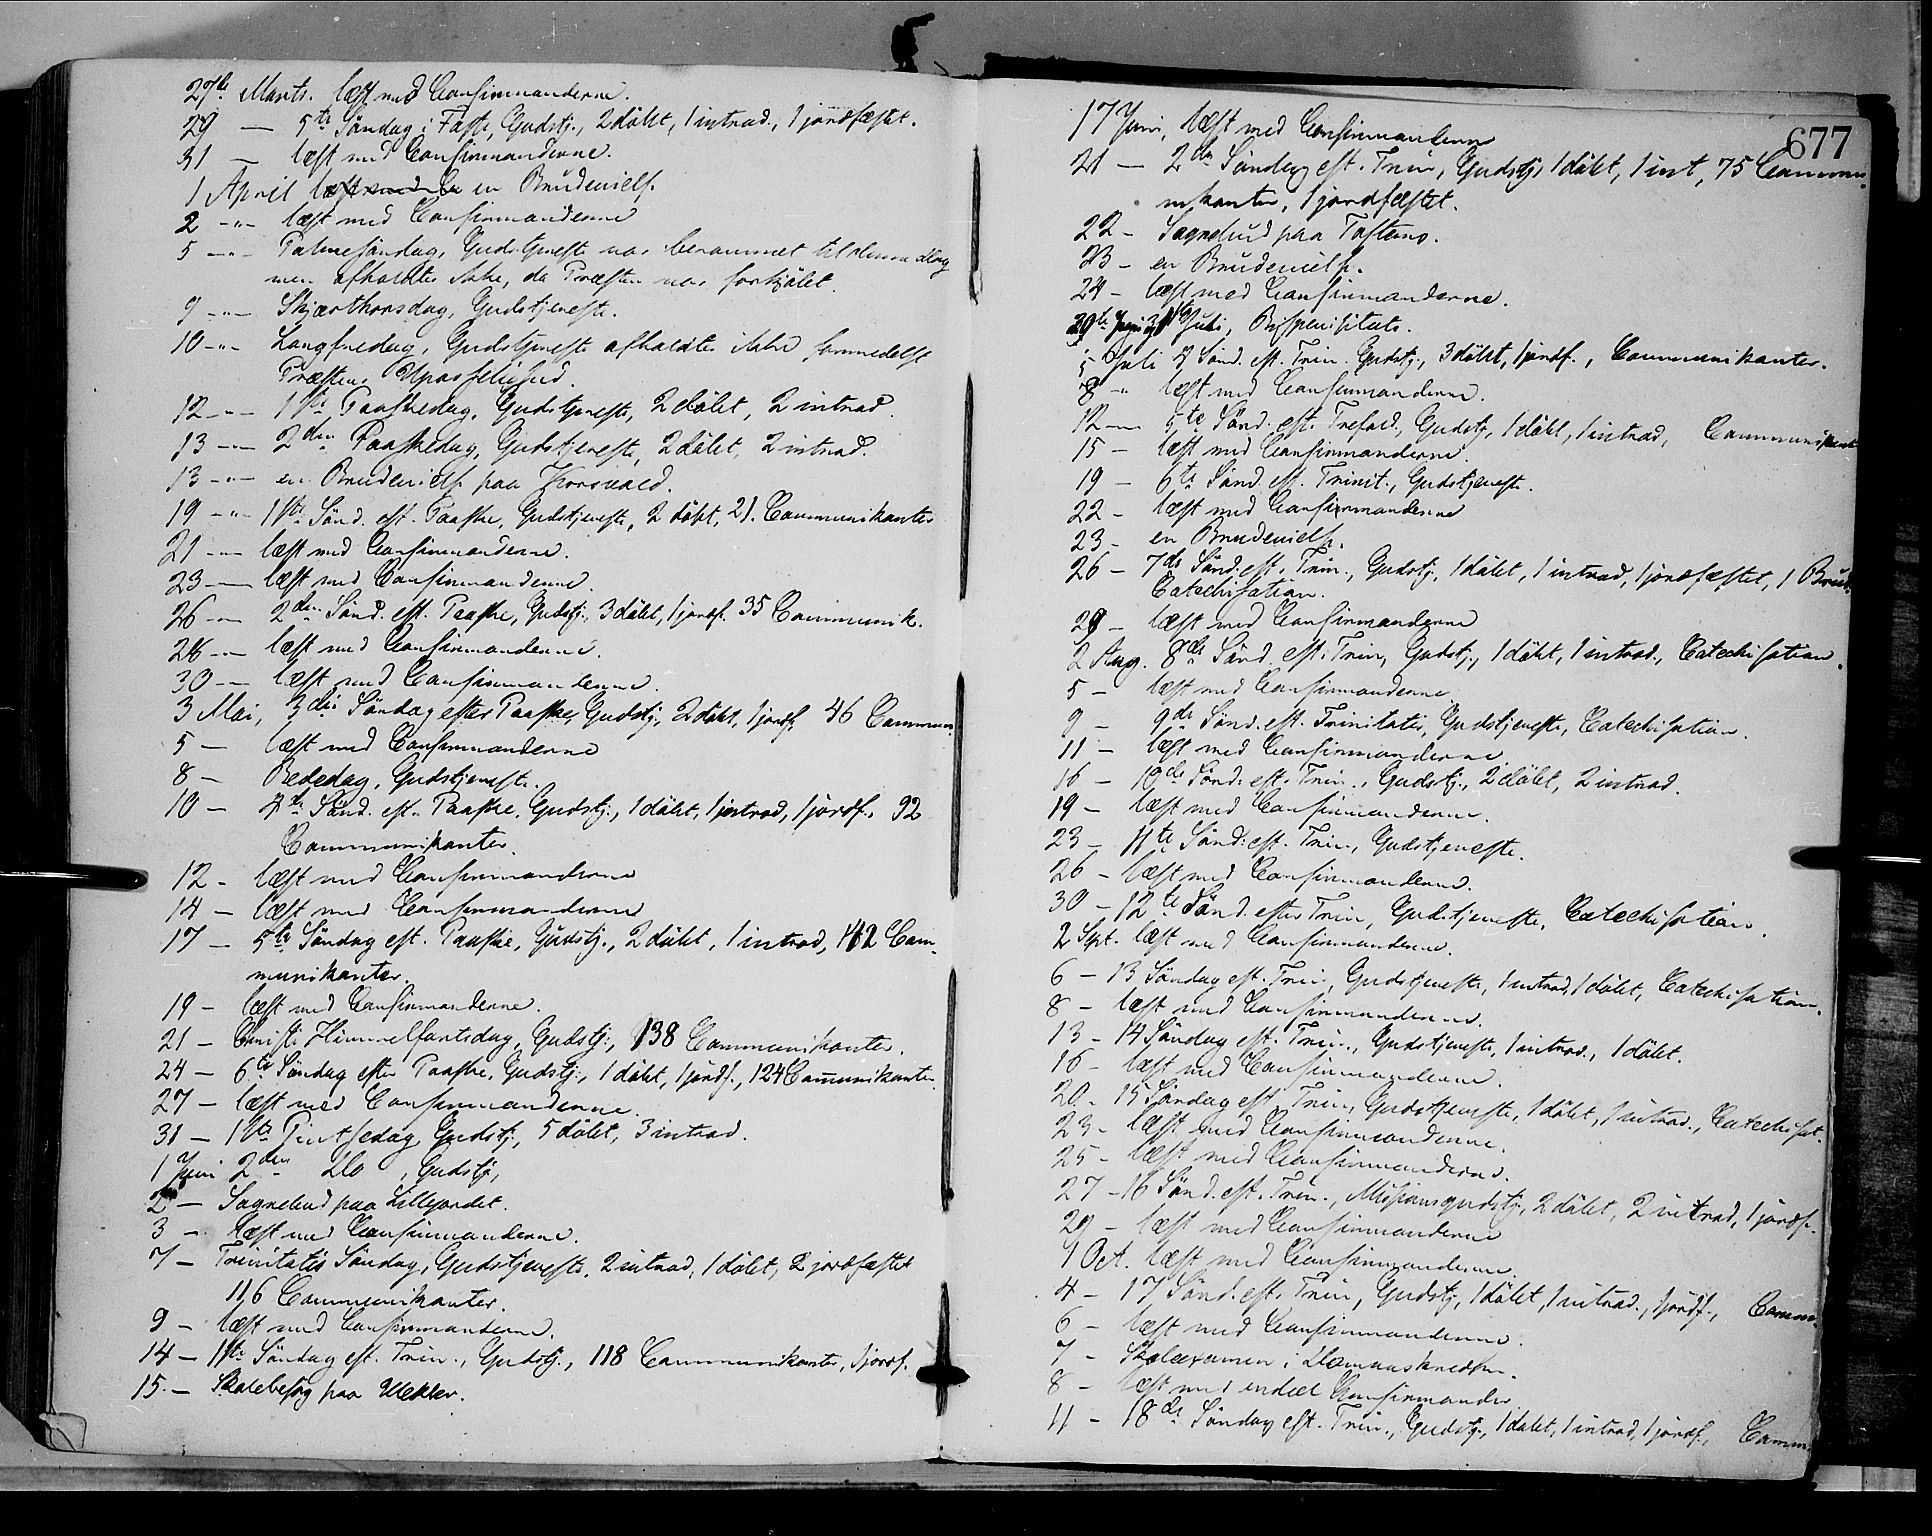 27de Marts. læst med Confirmanderne.
29 — 5te Söndag i Faste, Gudstj., 2 döbt, 1 introd., 1 jordfæstet.
31 — læst med Confirmanderne.
1 April en Brudevielse.
2 -"- læst med Confirmanderne
5 -"- Palmesöndag, Gudstjeneste var berammet til denne Dag
men afholdtes ikke, da Præsten var forkjölet.
9 -"- Skjærthorsdag, Gudstjeneste.
10 -"- Langfredag, Gudstjeneste afholdtes ikke formedelst
Præstens Upasselighed.
12 -"- 1ste Paaskedag, Gudstjeneste, 2 döbt, 2 introd.
13 -"- 2den Paaskedag, Gudstjeneste, 2 döbt, 2 introd.
13 -"- en Brudevielse paa Korsvold.
19 -"- 1ste Sönd. eft. Paaske, Gudstjeneste, 2 döbt, 21. Communikanter
21 -"- læst med Confirmanderne.
23 -"- læst med Confirmanderne.
26 -"- 2den Sönd. eft. Paaske, Gudstj., 3 döbt, 1 jordf. 35 Communik.
28 -"- læst med Confirmanderne.
30 -"- læst med Confirmanderne.
3 Mai, 3die Söndag efter Paaske, Gudstj., 2 döbt, 1 jordf. 46 Commun.
5 — læst med Confirmanderne
8 — Bededag, Gudstjeneste.
10 — 4de Sönd. eft. Paaske, Gudstj., 1 döbt, 1 introd, 1 jordf. 92
Communikanter.
12 — læst med Confirmanderne
14 — læst med Confirmanderne
17 — 5te Söndag eft. Paaske, Gudstj., 2 döbt, 1 introd, Com-
munikanter.
19 — læst med Confirmanderne.
21 — Christi Himmelfartsdag, Gudstj., 138 Communikanter.
24 — 6te Söndag efter Paaske, Gudstj., 1 döbt, 1 jordf., 124 Communikanter
27 — læst med Confirmanderne.
31 — 1ste Pintsedag, Gudstj., 5 döbt, 3 introd.
1 Juni 2den Do, Gudstj.,
2 — Sognebud paa Lillejordet.
3 — læst med Confirmanderne.
7 — Trinitatis Söndag, Gudstjeneste, 2 introd, 1 döbt, 2 jordfæstet
116 Communikanter.
9 — læst med Confirmanderne.
14 — 1ste Söndag eft. Trin., Gudstj., 118 Communikanter, 1 jordf.
15. — Skolebesög paa
677
17 Juni, læst med Confirmanderne
21 — 2den Söndag eft. Trin, Gudstj, 1 döbt, 1 int, 75 Commu-
nikanter, 1 jordfæstet.
22 — Sognebud paa
23 — en Brudevielse.
24 — læst med Confirmanderne.
Juli, Bispevisitats.
5 Juli 4 Sönd. eft. Trin. Gudstj., 3 döbt, 1 jordf., Communikanter.
8 -"- læst med Confirmanderne.
12 — 5te Sönd. eft. Trefold., Gudstj, 1 döbt, 1 introd, Communikant
15 — læst med Confirmanderne.
19 — 6te Sönd. eft. Trinit., Gudstjeneste.
22 — læst med Confirmanderne
23 — en Brudevielse.
26 — 7de Sönd. eft. Trin., Gudstj., 1 döbt, 1 introd, 1 jordfæstet, 1 Brud-
Catechisation.
29 — læst med Confirmanderne
2 Aug. 8de Sönd. eft. Trin, Gudstj., 1 döbt, 1 introd., Catechisation.
5 — læst med Confirmanderne.
9 — 9de Sönd. eft. Trinitatis, Gudstjeneste, Catechisation.
11 — læst med Confirmanderne.
16 — 10de Sönd. eft. Trin., Gudstj., 2 döbt, 2 introd.
19 — læst med Confirmanderne.
23 — 11te Sönd. eft. Trin., Gudstjeneste.
26 — læst med Confirmanderne.
30 — 12te Sönd. efter Trin, Gudstjeneste, Catechisation.
2 Sept. læst med Confirmanderne.
6 — 13 Söndag eft. Trin, Gudstjeneste, 1 introd, 1 döbt, Catechisation.
8 — læst med Confirmanderne.
13 — 14 Söndag eft. Trin., Gudstjeneste, 1 introd., 1 döbt.
16 — læst med Confirmanderne.
20 — 15 Söndag eft. Trin, Gudstjeneste, 1 döbt, 1 introd., Catechisat.
23 — læst med Confirmanderne.
25 — læst med Confirmanderne.
27 — 16 Sönd. eft. Trin., Missionsgudstj., 2 döbt, 2 introd, 1 jordf.
29 — læst med Confirmanderne
1 Oct. læst med Confirmanderne.
4 — 17 Sönd. eft. Trin, Gudstj, 1 döbt, 1 introd., 1 jordf., Comm.
6 — læst med Confirmanderne.
7 — Skoleexamen i
8 — læst med endeel Confirmander
11 — 18de Söndag eft. Trin., Gudstj., 1 döbt, 1 introd, 1 jordf., Comm.